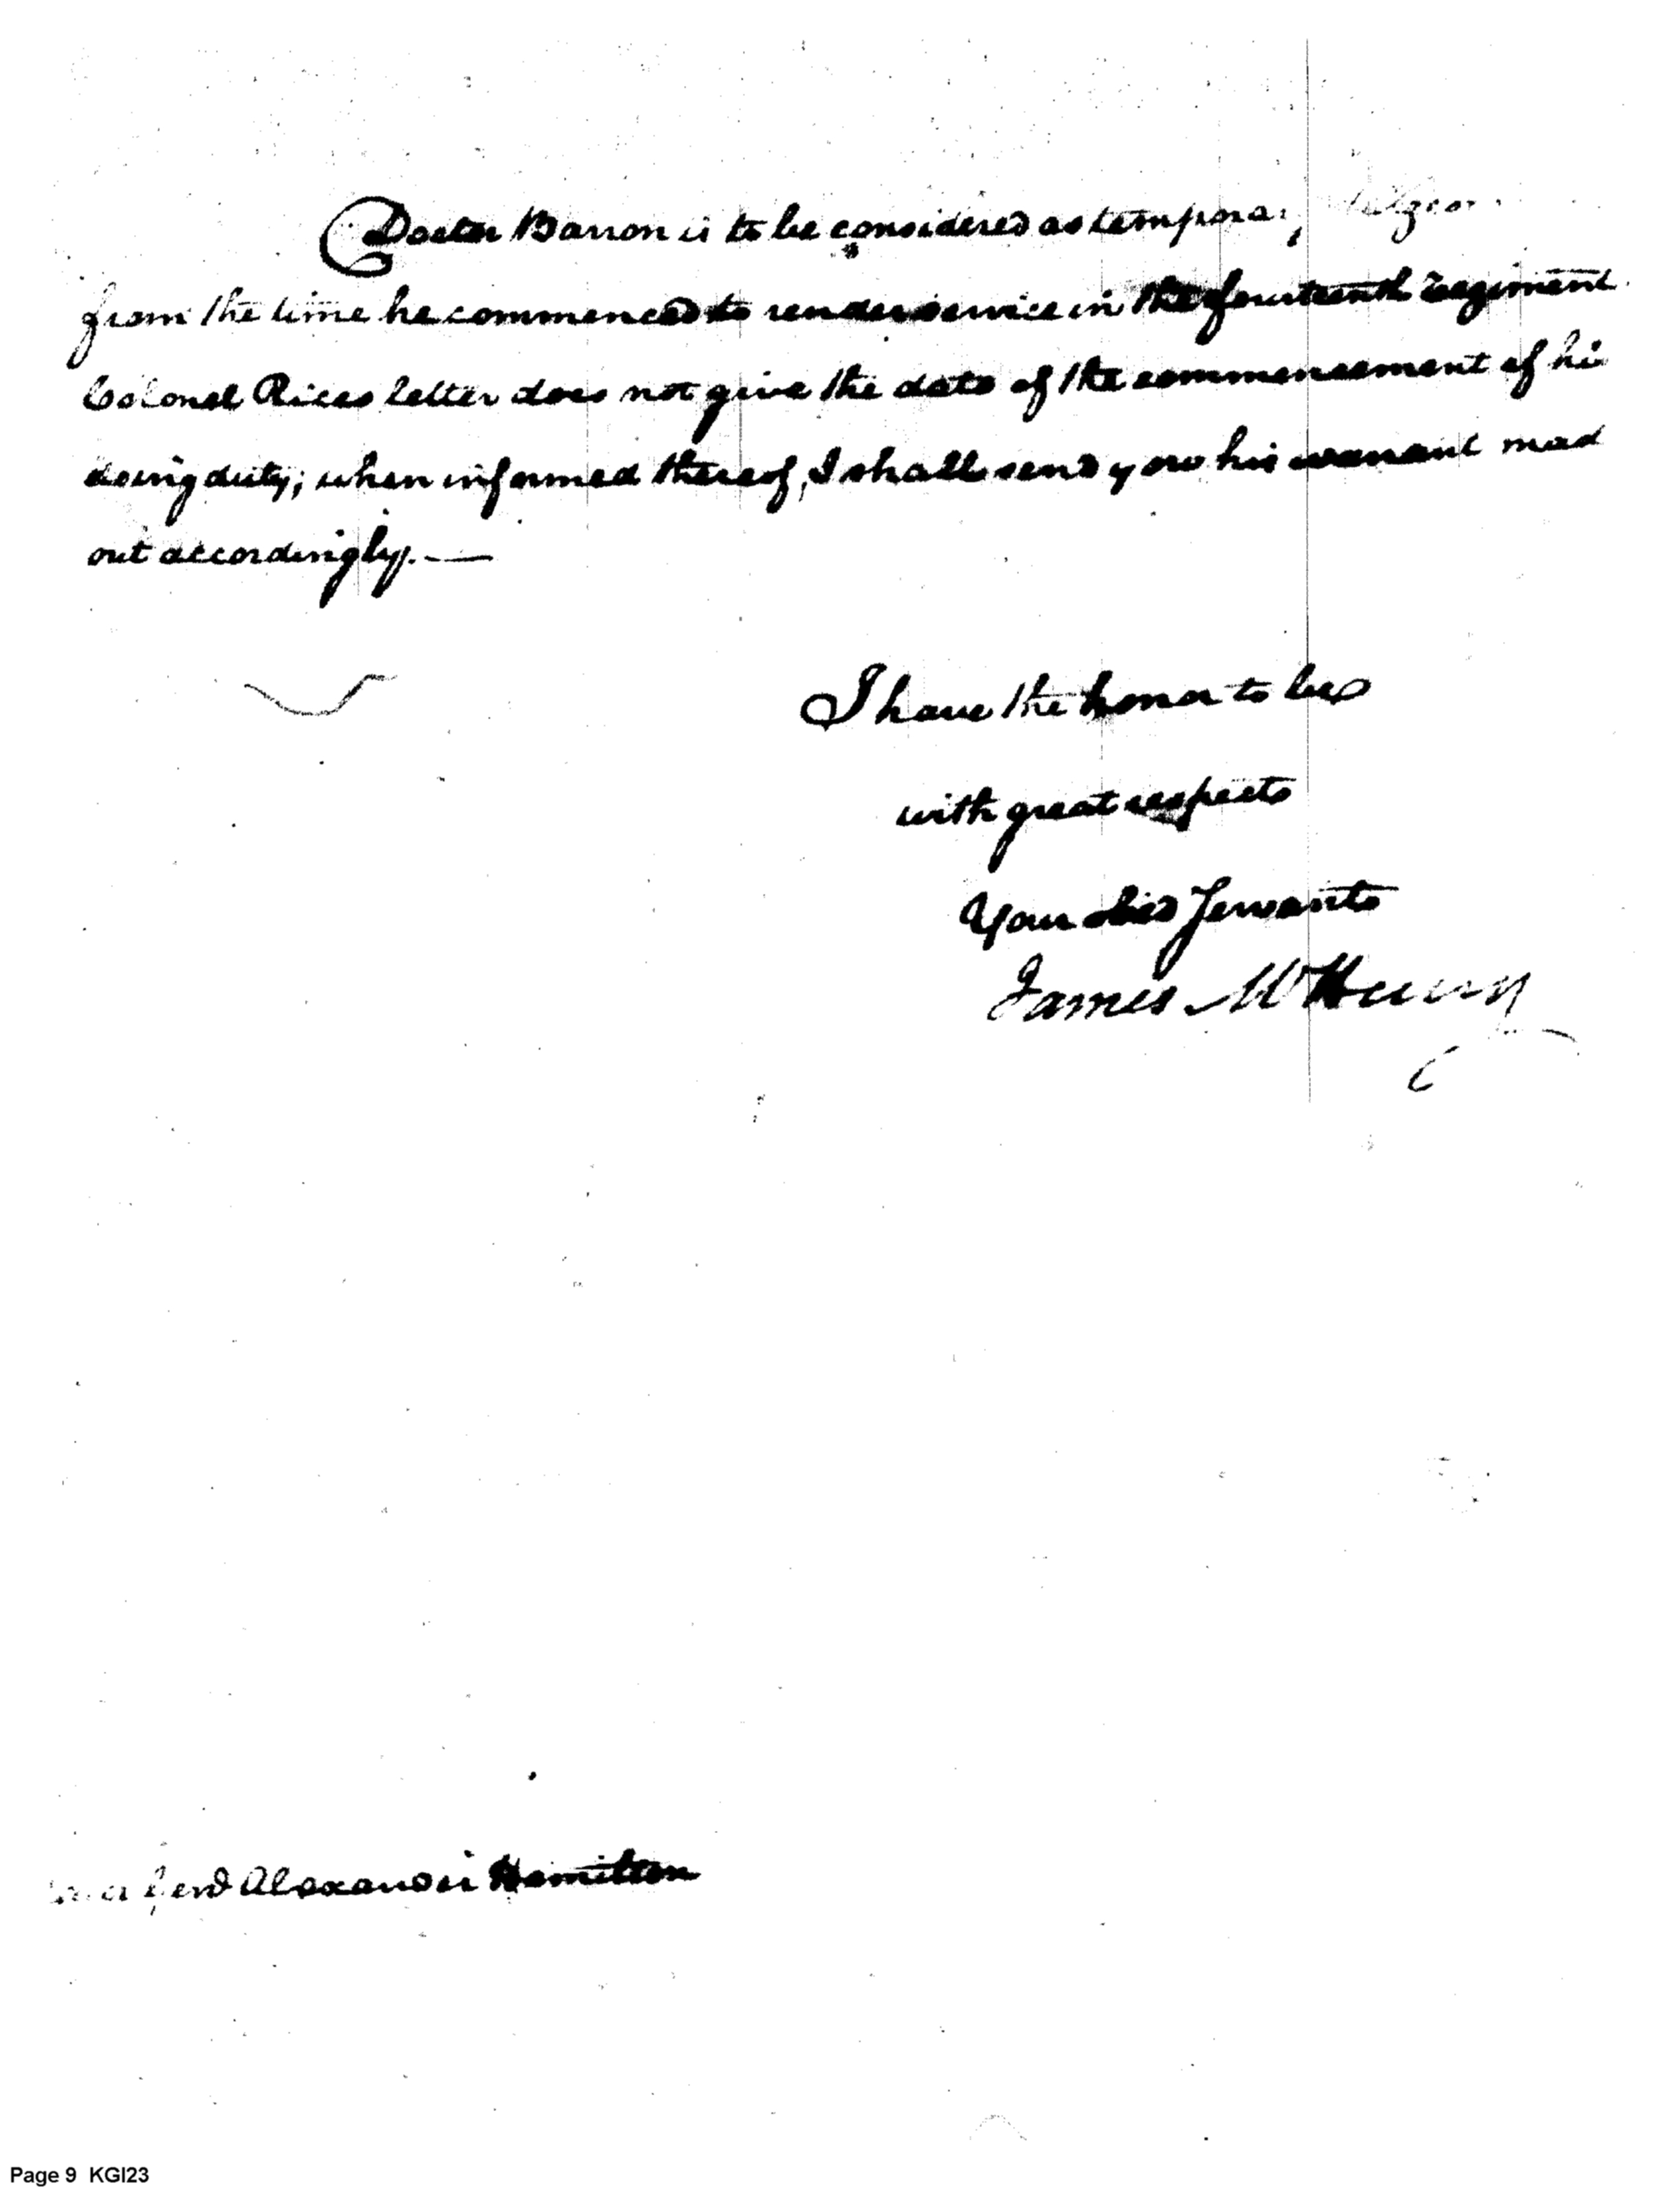 Doctor Barron is to be considered as temporary Surgeon
from the time he commenced to render service in the fourteenth regiment.
Colonel Rices letter does not give the date of the commencement of his
doing duty; when informed thereof, I shall send you his warrant mad
out accordingly. —
I have the honor to be
with great respect
Your obed Servant
James McHenry
Genl Alexander Hamilton
Page 9 KGI23